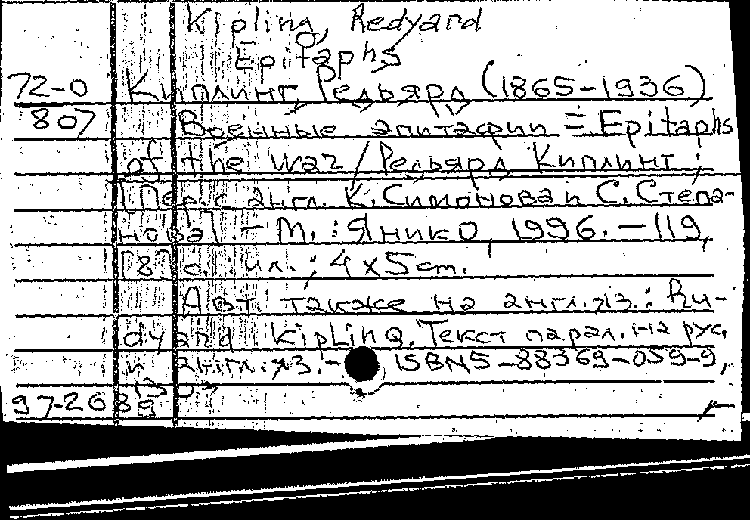 Kipling, Redyard
Epitaphs
72-0 Киплинг, Редьярд (1865-1936)
807 Военные эпитафии = Epitaphs
of the war / Редьярд Киплинг ;
[Пер. с англ. К. Симонова и С. Степа-
нова]. - М. : Янико, 1996. - 119,
[8] с. ил. ; 4x5 см.
Авт. также на англ. яз.: Ru-
dyard Kipling. Текст парал. на рус.
и англ. яз. - ISBN 5-88369-059-9,
97-2689